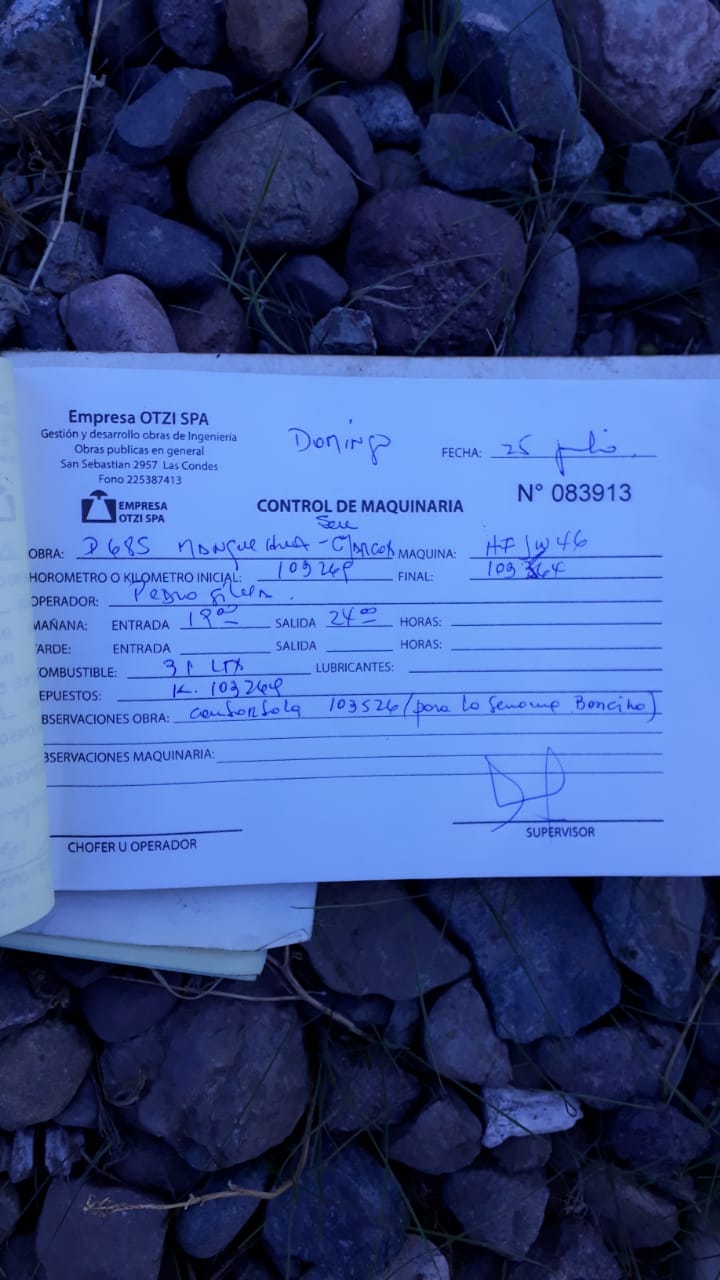 Empresa OTZI SPA
Gestión y desarrollo obras de Ingeniería
Obras publicas en general
San Sebastian 2957 Las Condes
Fono 225387413
EMPRESA
OTZI SPA
Domingo
FECHA: 25 julio
N° 083913
CONTROL DE MAQUINARIA
OBRA: D685 MANQUEHUA - MAQUINA:
HOROMETRO O KILOMETRO INICIAL: 103269 FINAL:
OPERADOR: Pedro
MAÑANA: ENTRADA 19:00 SALIDA 24:00 HORAS:
ARDE: ENTRADA SALIDA HORAS:
OMBUSTIBLE: 31 LTX LUBRICANTES:
EPUESTOS: K. 103269
BSERVACIONES OBRA: 103526 (para
BSERVACIONES MAQUINARIA:
CHOFER U OPERADOR
SUPERVISOR